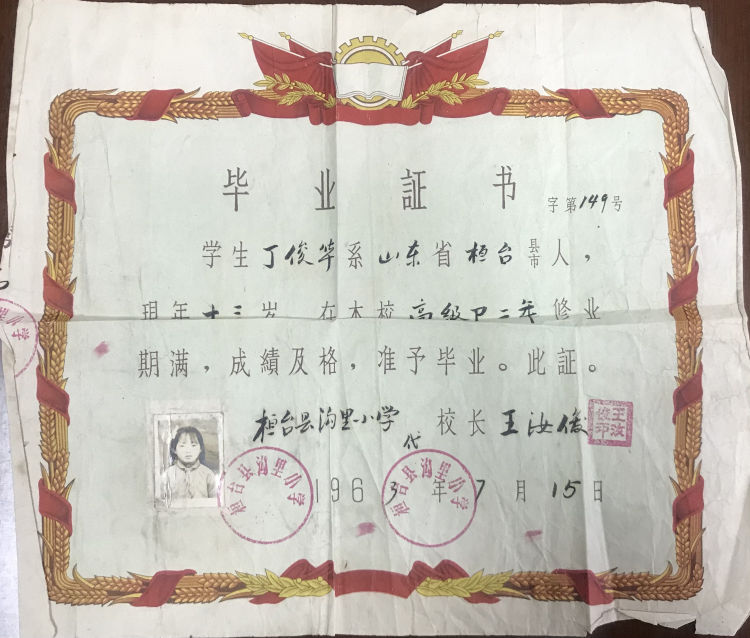 毕业証书
字第149号
学生丁俊华系山东省桓台县市人，
現年十三岁 在本校高级 二年修业
期满，成績及格，准予毕业。此証。
桓台县沟里小学
代校长王汝俊
王汝俊印
1963年7月15日
桓台县沟里小学
桓台县沟里小学
学